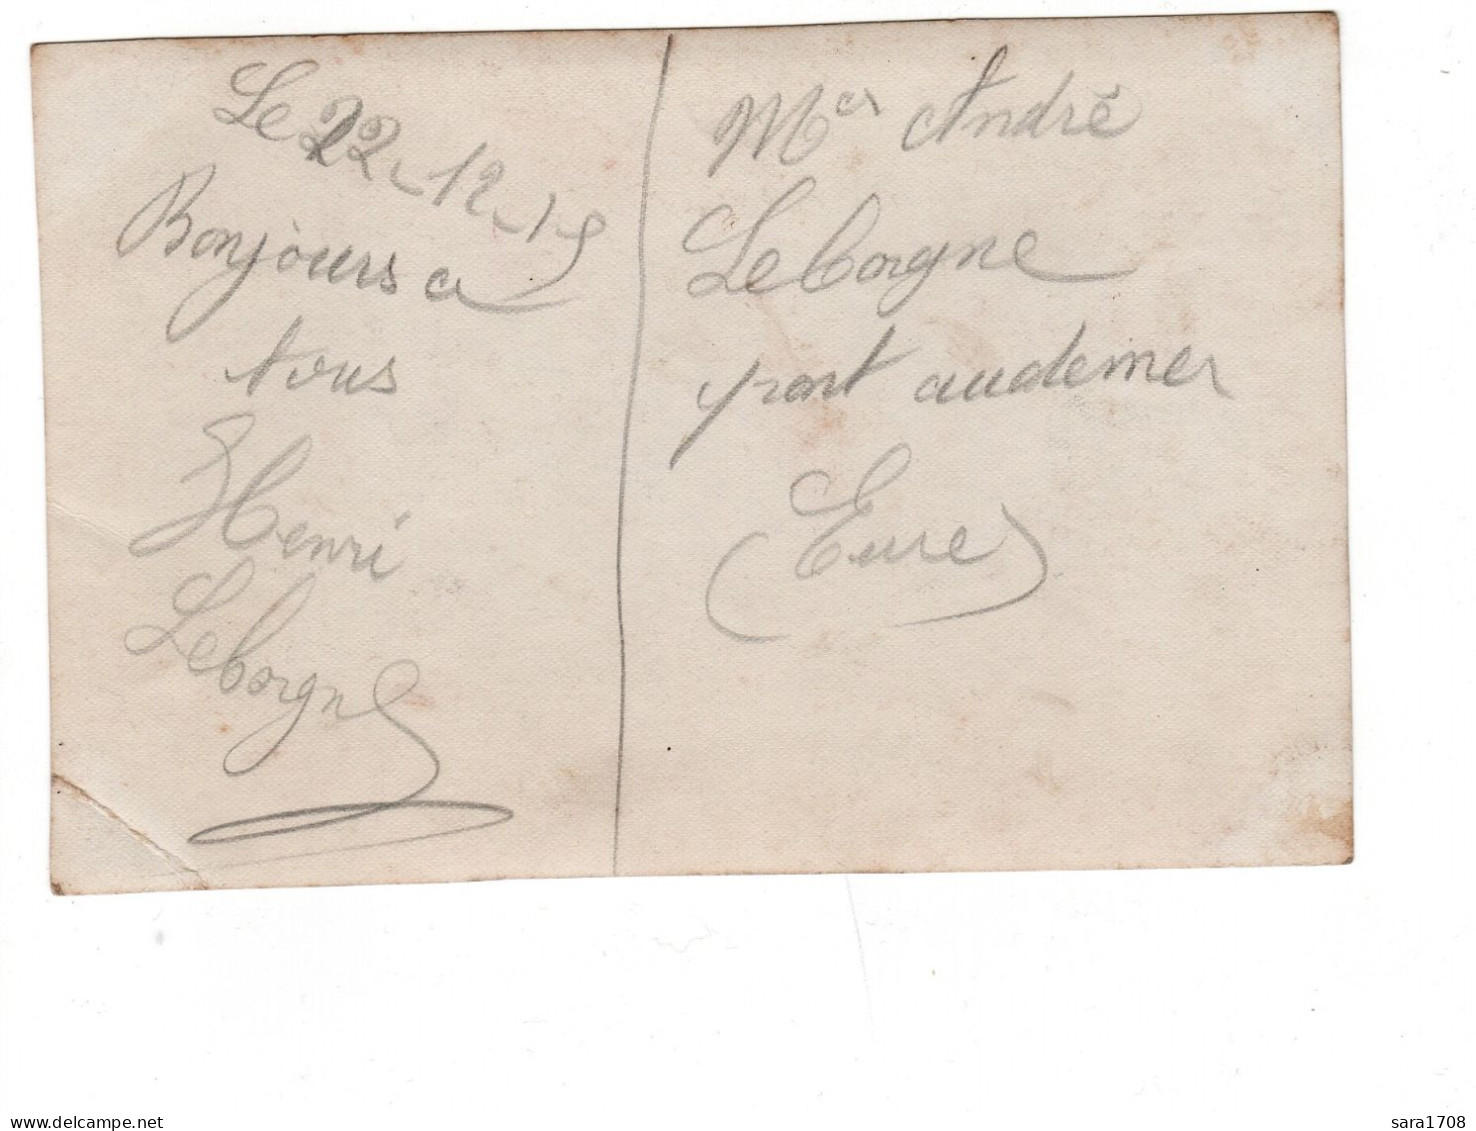 Le 22-12-15
Bonjours a
tous
Henri
Leborgne
Mer André
Leborgne
pont audemer
(Eure)
sara1708